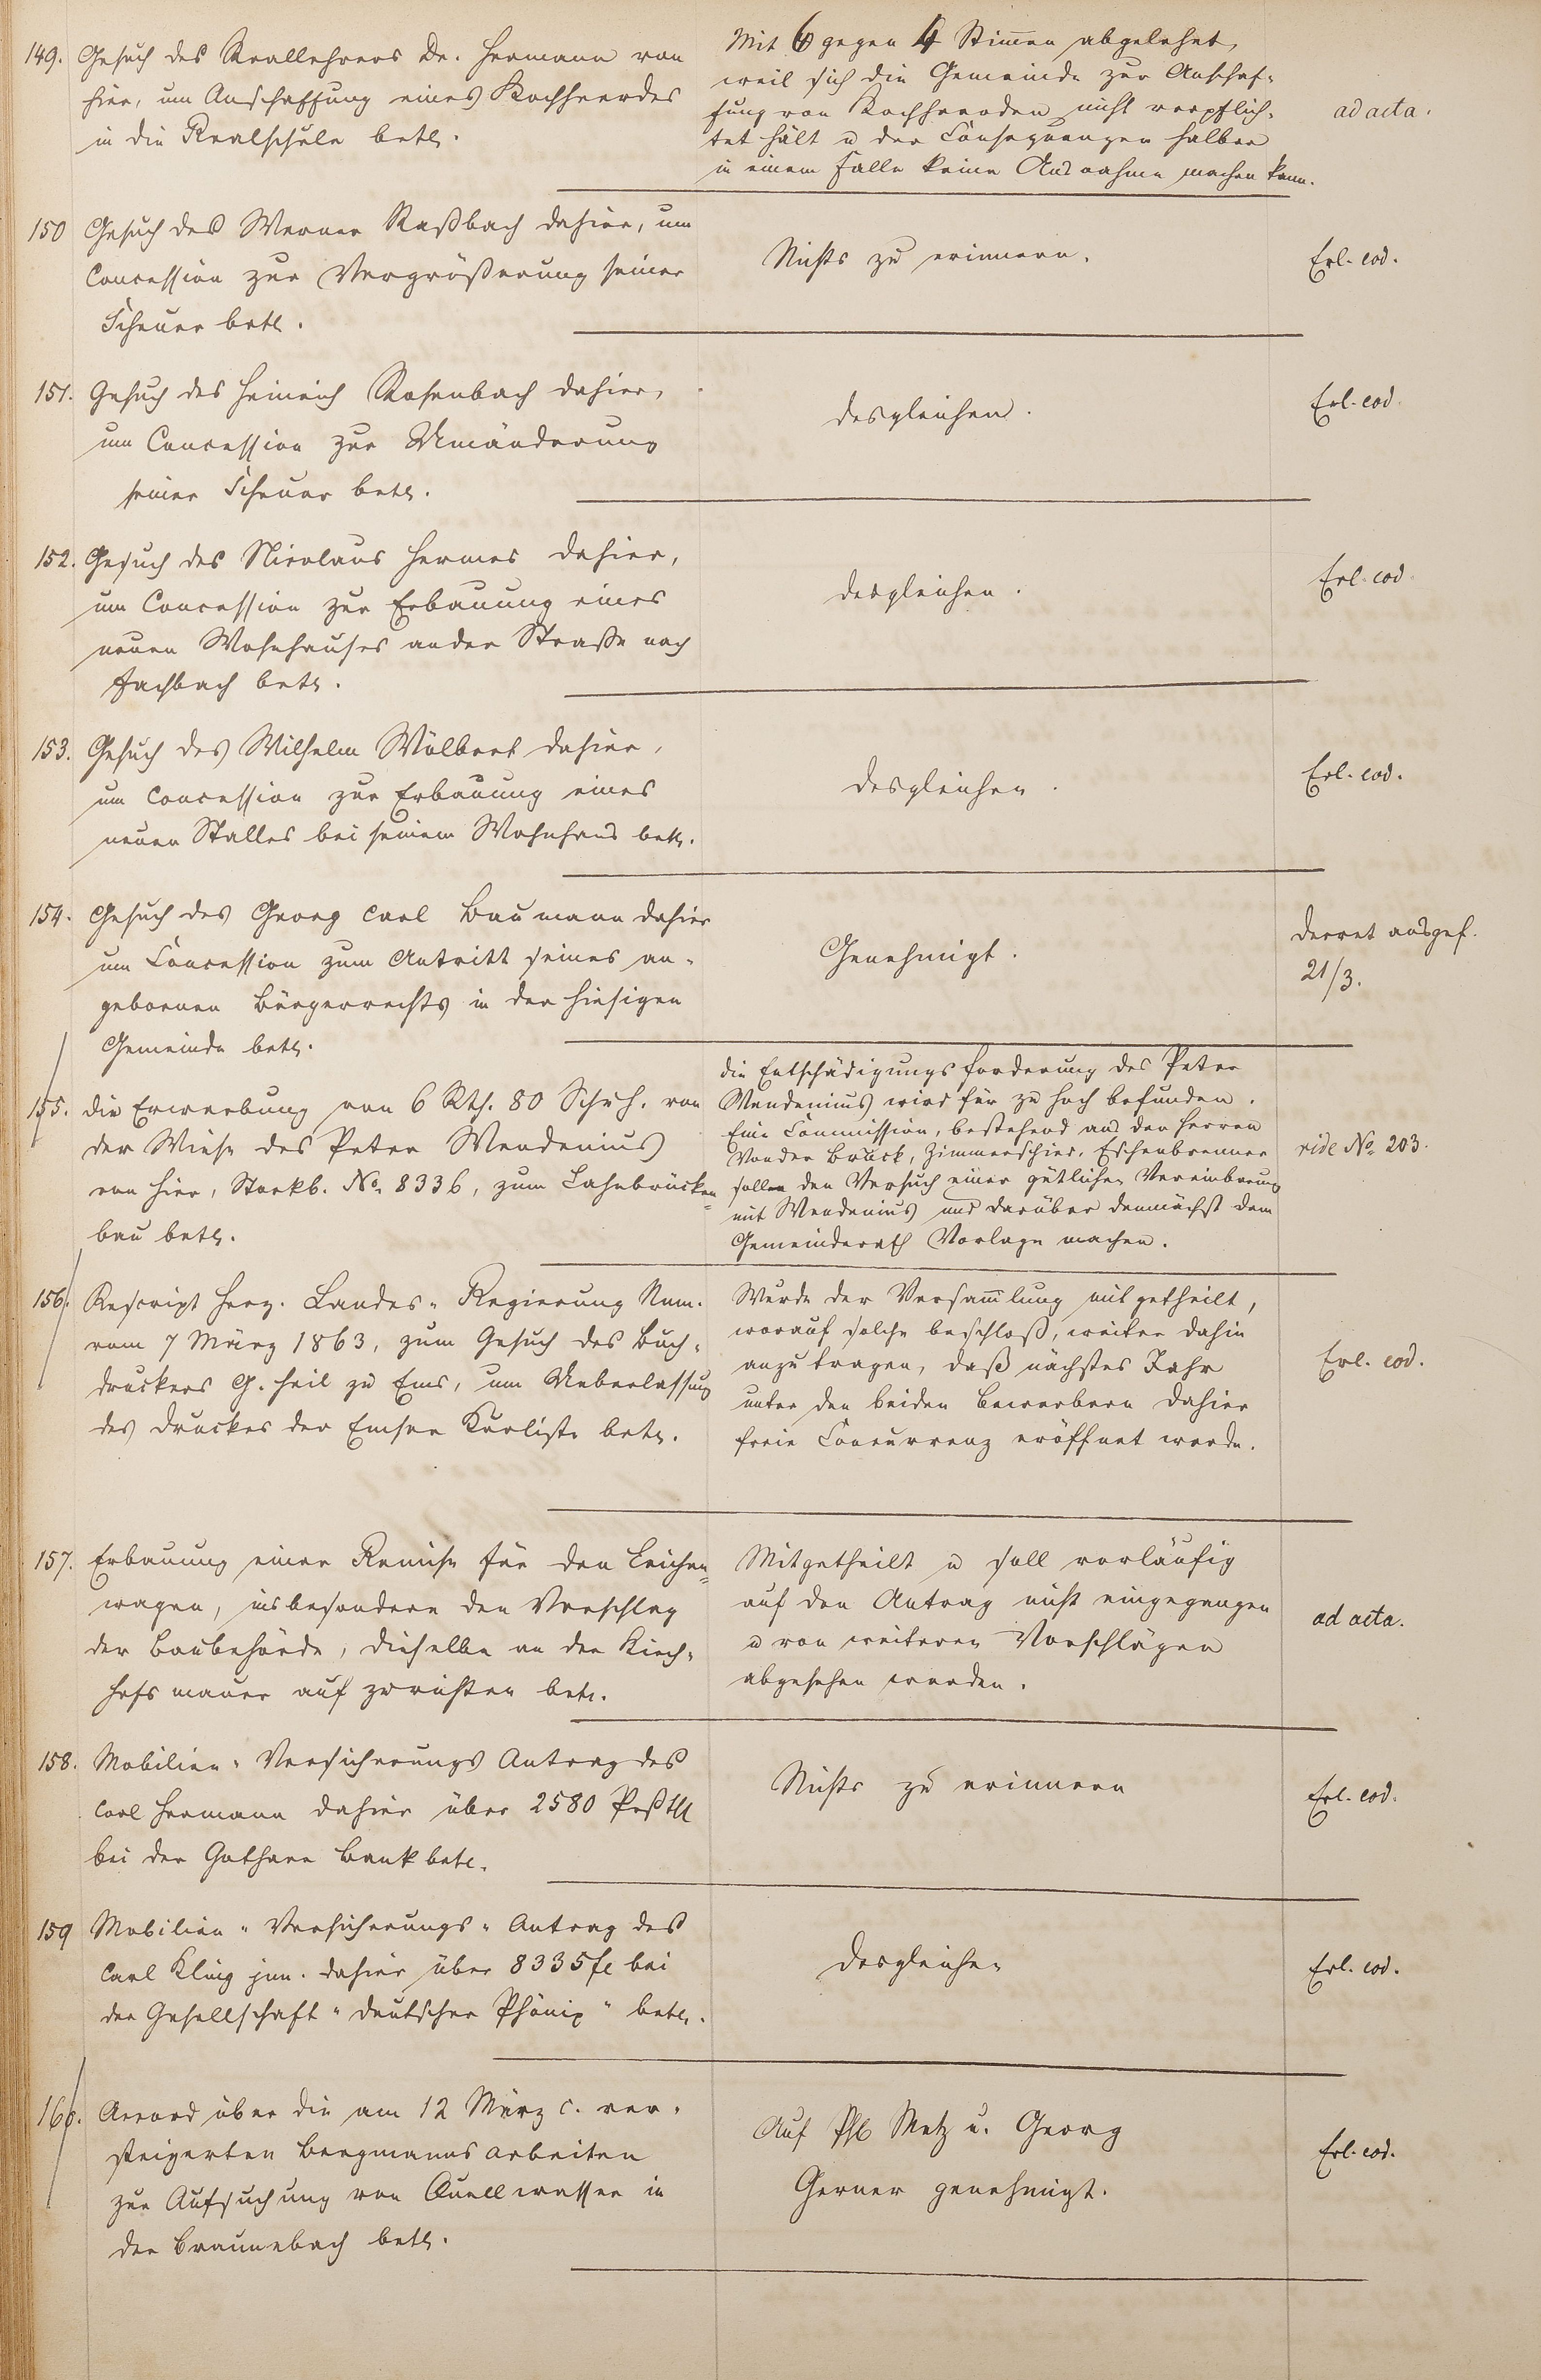 149. Gesuch des Reallehrers Dr. Hermann von
hier, um Anschaffung eines Kochheerdes
in die Realschule betr.
Mit 6 gegen 4 Stimmen abgelehnt,
weil sich die Gemeinde zur Anschaf-
fung von Kochheerden nicht verpflich-
tet hält u der Consequenzen halber
in einem Falle keine Ausnahme machen kann.
ad acta.
150 Gesuch des Werner Raßbach dahier, um
Concession zur Vergrößerung seiner
Scheuer betr.
Nichts zu erinnern.
Erl. eod.
151. Gesuch des Heinrich Rosenbach dahier,
um Concession zur Umänderung
seiner Scheuer betr.
desgleichen.
Erl. eod.
152. Gesuch des Nicolaus Hermes dahier,
um Concession zur Erbauung eines
neuen Wohnhauses an der Straße nach
Fachbach betr.
desgleichen.
Erl. eod.
153. Gesuch des Wilhelm Wölbert dahier,
um Concession zur Erbauung eines
neuen Stalles bei seinem Wohnhaus betr.
desgleichen.
Erl. eod.
154. Gesuch des Georg Carl Baumann dahier
um Concession zum Antritt seines an-
gebornen Bürgerrechts in der hiesigen
Gemeinde betr.
Genehmigt.
Decret ausgef.
21/3.
155. die Erwerbung von 6 Rth. 80 Schuh. von
der Wiese des Peter Wendenius
von hier, Stockb. No. 8336, zum Lahnbrücken=
bau betr.
die Entschädigungsforderung des Peter
Wendenius wird für zu hoch befunden.
Eine Commission, bestehend aus den Herren
Vonder Brück, Zimmerschied, Eschenbrenner
sollen den Versuch einer gütlichen Vereinbarung
mit Wendenius und darüber demnächst dem
Gemeinderath Vorlage machen.
vide No. 203.
156. Rescript Herz. Landes-Regierung Num.
vom 7 März 1863, zum Gesuch des Buch-
druckers G. Heil zu Ems, um Ueberlassung
des Druckes der Emser Kurliste betr.
Wurde der Versammlung mitgetheilt,
worauf solche beschloß, weiter dahin
anzutragen, daß nächstes Jahr
unter den beiden Bewerbern dahier
freie Concurrenz eröffnet werde.
Erl. eod.
157. Erbauung einer Remise für den Leichen=
wagen, insbesondere den Vorschlag
der Baubehörde, dieselbe an der Kirch-
hofsmauer aufzurichten betr.
Mitgetheilt u soll vorläufig
auf den Antrag nicht eingegangen
u von weiteren Vorschlägen
abgesehen werden.
ad acta.
158. Mobilien-Versicherungs Antrag des
Carl Hermann dahier über 2580 Prßthl
bei der Gothaer Bank betr.
Nichts zu erinnern
Erl. eod.
159 Mobilien-Versicherungs-Antrag des
Carl Kling jun. dahier über 8335 fl bei
der Gesellschaft "deutscher Phönix" betr.
desgleichen
Erl. eod.
160. Accord über die am 12 März c. ver-
steigerten Bergmannsarbeiten
zur Aufsuchung von Quellwasser in
der Braunebach betr.
Auf Phl Metz u. Georg
Gerner genehmigt.
Erl. eod.